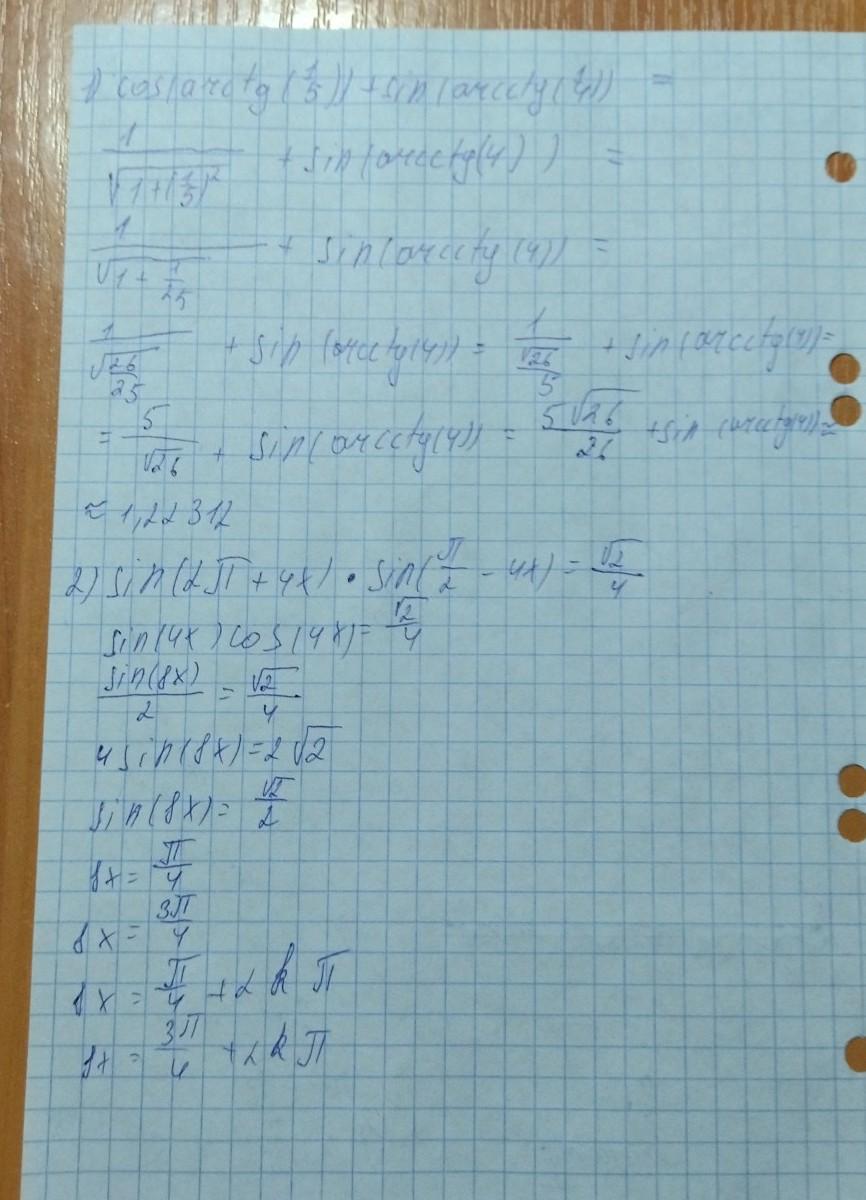 1) cos(arcctg(1/5)) + sin(arcctg(4)) =
1/√(1+(1/5)²) + sin(arcctg(4)) =
1/√(1+1/25) + sin(arcctg(4)) =
1/√(26/25) + sin(arcctg(4)) = 1/(√26/5) + sin(arcctg(4)) =
= 5/√26 + sin(arcctg(4)) = 5√26/26 + sin(arcctg(4)) ≈
≈ 1,22312
2) sin(2π + 4x) · sin(π/2 - 4x) = √2/4
sin(4x)cos(4x) = √2/4
sin(8x)/2 = √2/4
4 sin(8x) = 2√2
sin(8x) = √2/2
8x = π/4
8x = 3π/4
8x = π/4 + 2kπ
8x = 3π/4 + 2kπ